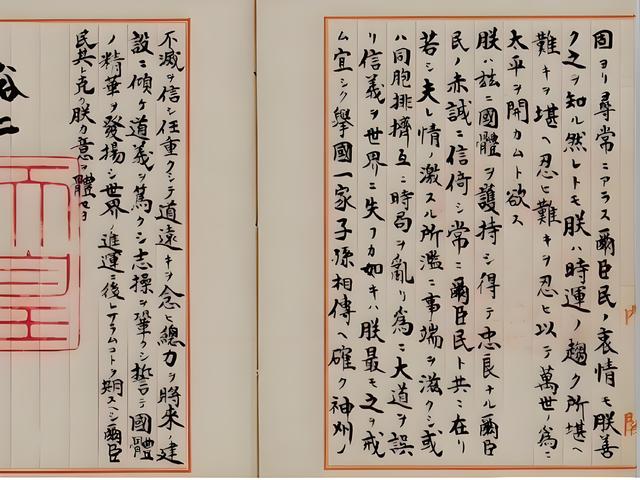 固ヨリ尋常ニアラス爾臣民ノ衷情モ朕善
ク之ヲ知ル然レトモ朕ハ時運ノ趨ク所堪ヘ
難キヲ堪ヘ忍ヒ難キヲ忍ヒ以テ萬世ノ為ニ
太平ヲ開カムト欲ス
朕ハ茲ニ國體ヲ護持シ得テ忠良ナル爾臣
民ノ赤誠ニ信倚シ常ニ爾臣民ト共ニ在リ
若シ夫レ情ノ激スル所濫ニ事端ヲ滋クシ或
ハ同胞排擠互ニ時局ヲ亂リ為ニ大道ヲ誤
リ信義ヲ世界ニ失フカ如キハ朕最モ之ヲ戒
ム宜シク擧國一家子孫相傳ヘ確ク神州ノ
不滅ヲ信シ任重クシテ道遠キヲ念ヒ總力ヲ將來ノ建
設ニ傾ケ道義ヲ篤クシ志操ヲ鞏クシ誓テ國體
ノ精華ヲ發揚シ世界ノ進運ニ後レサラムコトヲ期スヘシ爾臣
民其レ克ク朕カ意ヲ體セヨ
天皇